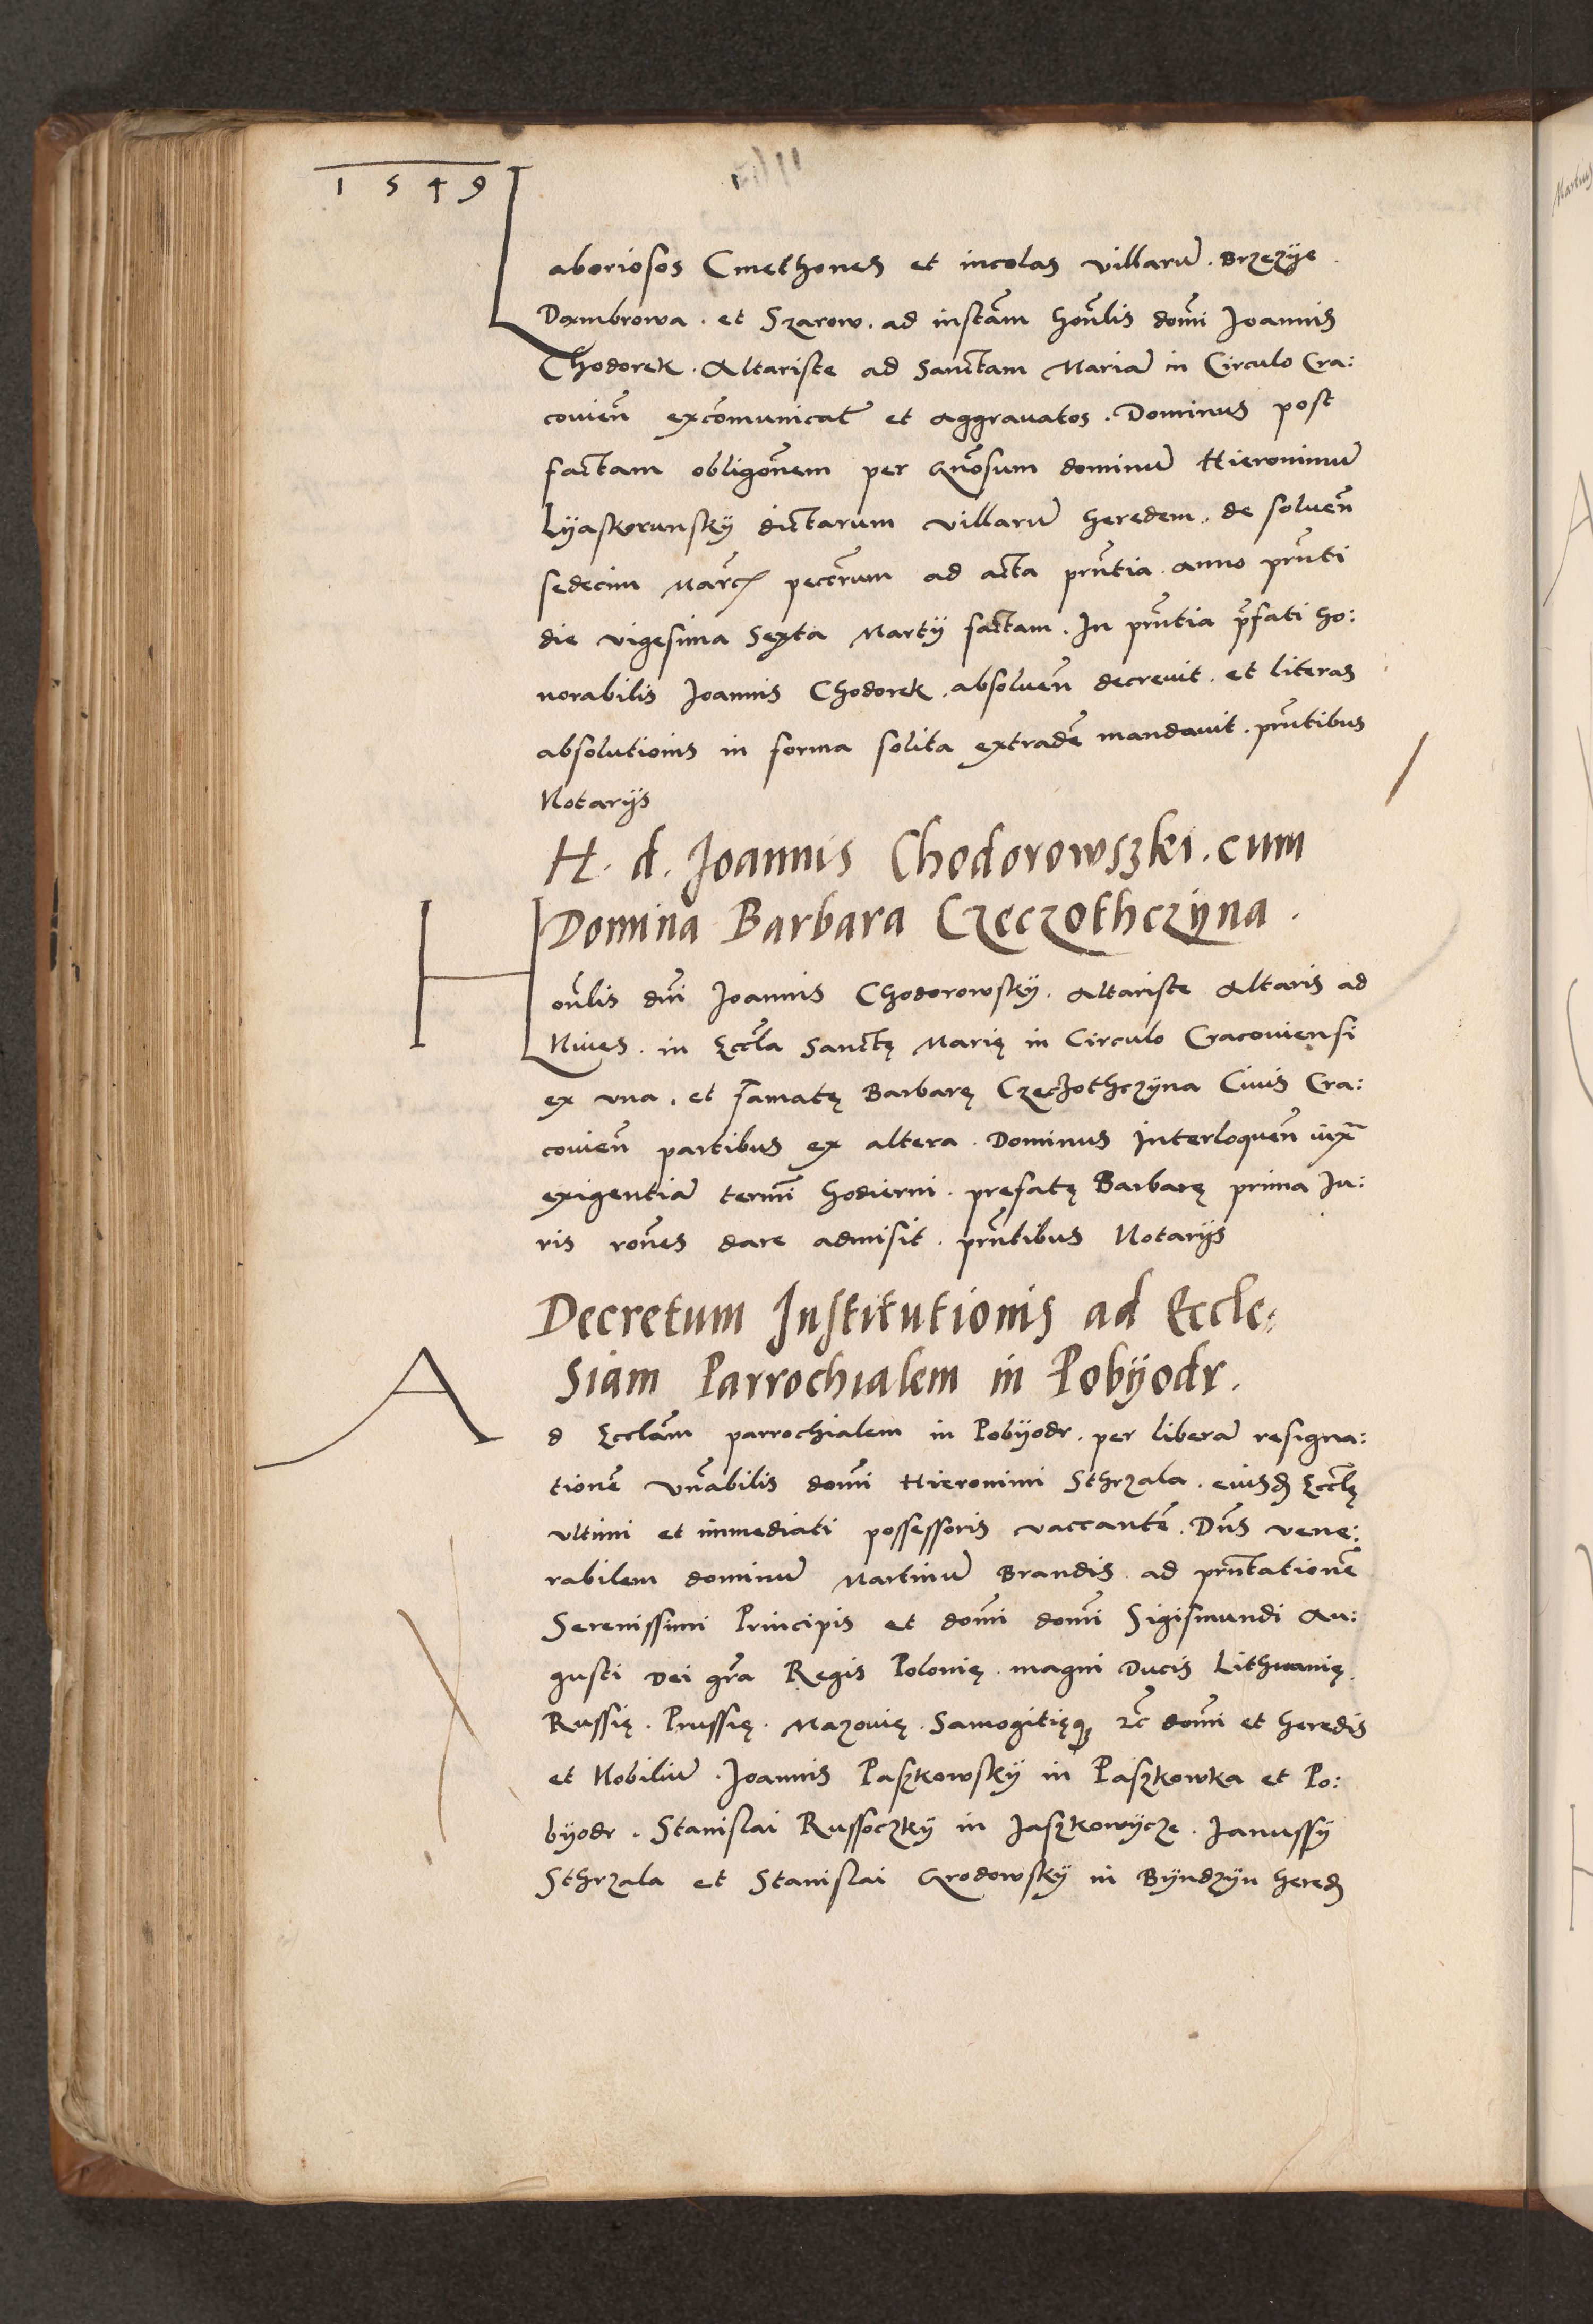 1549
Laboriosos Cmethones et incolas villarũ. Brzezÿe.
Dambrowa. et Szarow. ad instãm honˉlis domˉi Joannis
Chodorek. Altariste ad Sanctam Mariã in Circulo Cra:
covienˉ excõmunicatˉ et aggravatos. Dominus post
factam obligõnem per Gnõsum dominũ Hieronimũ
Lÿaskorunskÿ dictarum villarũ heredem. de solvenˉ
sedecim Marcˉ pecˉrum ad acta prˉntia anno prˉnti
die vigesima Sexta Martÿ factam. In prˉntia p̃fati ho:
norabilis Joannis Chodorek. absolvenˉ decrevit. et literas
absolutionis in forma solita extradẽ mandavit. prˉntibus
Notarÿs
H. d. Joannis Chodorowszki. cum
Domina Barbara Czeczothczÿna.
Honˉlis dnˉi Joannis Chodorowskÿ. Altariste Altaris ad
Nives. in Eccˉla Sanctę Marię in Circulo Cracoviensi
ex una. et famatę Barbarę Czeczothczÿna Civis Cra:
covienˉ partibus ex altera. Dominus Interloquenˉ iuxˉ
exigentiã termˉi hodierni. prefatę Barbarę prima Ju:
ris rõnes dare admisit. prˉntibus Notarÿs
Decretum Institutionis ad Eccle:
Siam Parrochialem in Pobÿodr.
Ad Ecclãm parrochialem in Pobÿodr. per liberã resigna:
tionẽ Vnˉabilis domˉi Hieronimi Sthrzala. eiusdˉ Eccˉlę
ultimi et immediati possessoris vaccantẽ. Dnˉs vene:
rabilem dominũ Martinũ Brandis. ad prˉntationẽ
Serenissimi Principis et domˉi domˉi Sigismundi Au:
gusti Dei grã Regis Polonię. magni Ducis Lithuanię.
Russię. Prussię. Mazovię. Samogitięqȝ ⁊cˉ domˉi et heredis
et Nobiliũ. Joannis Paszkowskÿ in Paszkowka et Po:
bÿodr. Stanislai Russoczkÿ in Jaszkowÿcze. Janussÿ
Sthrzala et Stanislai Grodowskÿ in Bÿndzÿn heredˉ